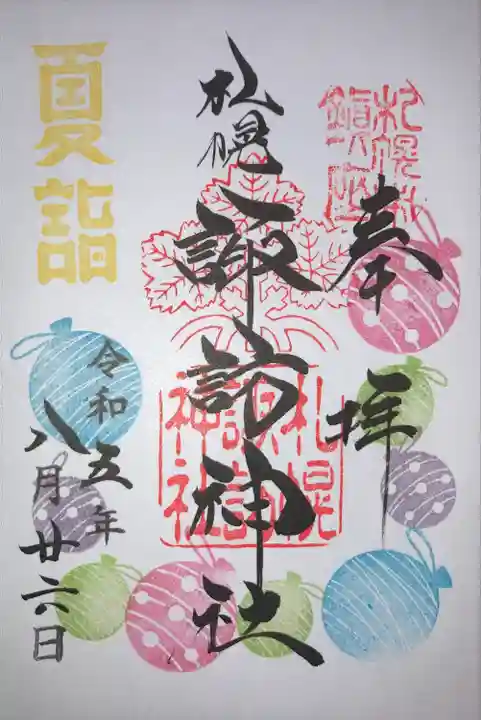 奉拝
札幌諏訪神社
札幌諏訪神社
夏詣
令和五年
八月廿六日